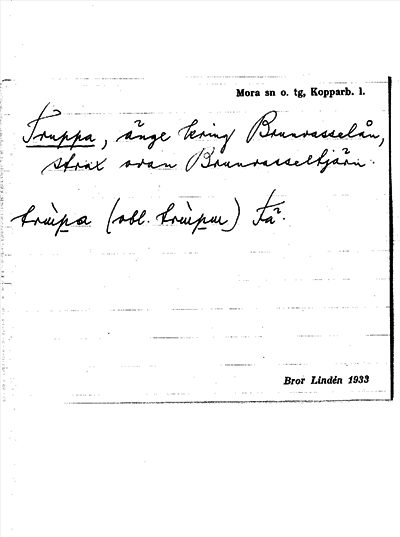 Mora sn o. tg, Kopparb. l.
Truppa, änge kring Brunvasselån,
strax ovan Brunvasseltjärn.
trùpa (obl. trùpu) Få².
Bror Lindén 1933